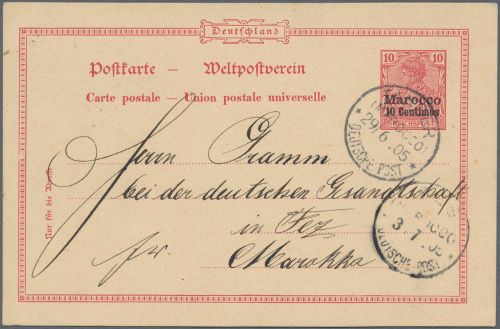 Deutschland
Postkarte — Weltpostverein
Carte postale — Union postale universelle
10 10
REICHSPOST
Marocco
10 Centimes
29/6 05
* DEUTSCHE POST *
Nur für die Adresse
Herrn Gramm
bei der deutschen Gesandtschaft
in Fez
Marokko
fr.
3 7 05
DEUTSCHE POST